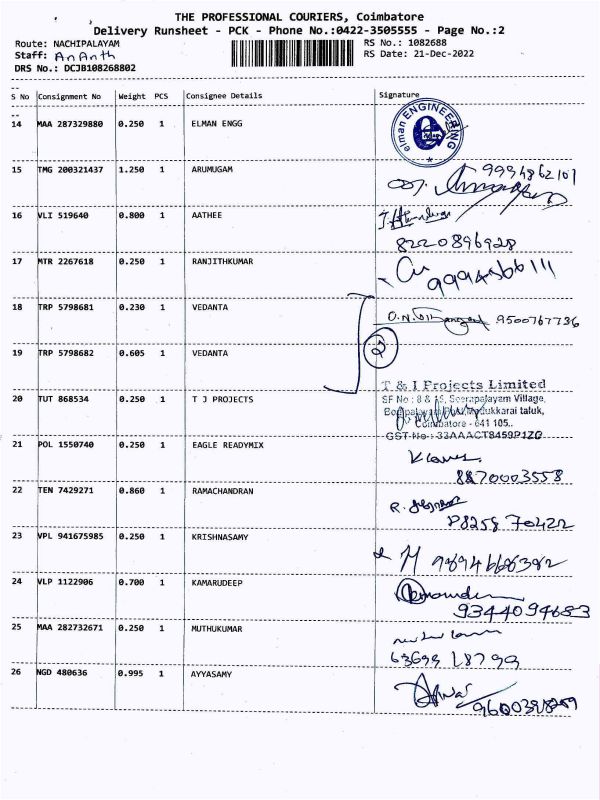 THE PROFESSIONAL COURIERS, Coimbatore
Delivery Runsheet - PCK - Phone No.:0422-3505555 - Page No.:2
Route: NACHIPALAYAM
RS No.: 1082688
Staff: AnAnth
RS Date: 21-Dec-2022
DRS No.: DCJB108268802
S No Consignment No Weight PCS Consignee Details Signature
14 MAA 287329880 0.250 1 ELMAN ENGG
elman ENGINEERING
15 TMG 200321437 1.250 1 ARUMUGAM
16 VLI 519640 0.800 1 AATHEE
8220896928
17 MTR 2267618 0.250 1 RANJITHKUMAR
9994566111
18 TRP 5798681 0.230 1 VEDANTA
9500767736
2
19 TRP 5798682 0.605 1 VEDANTA
20 TUT 868534 0.250 1 T J PROJECTS
T & I Projects Limited
SF No : 8 & 15, Seerapalayam Village,
taluk,
Coimbatore - 641 105..
GST No : 33AAACT8459P1ZG
21 POL 1550740 0.250 1 EAGLE READYMIX
8870003558
22 TEN 7429271 0.860 1 RAMACHANDRAN
23 VPL 941675985 0.250 1 KRISHNASAMY
24 VLP 1122906 0.700 1 KAMARUDEEP
9344094683
25 MAA 282732671 0.250 1 MUTHUKUMAR
26 NGD 480636 0.995 1 AYYASAMY